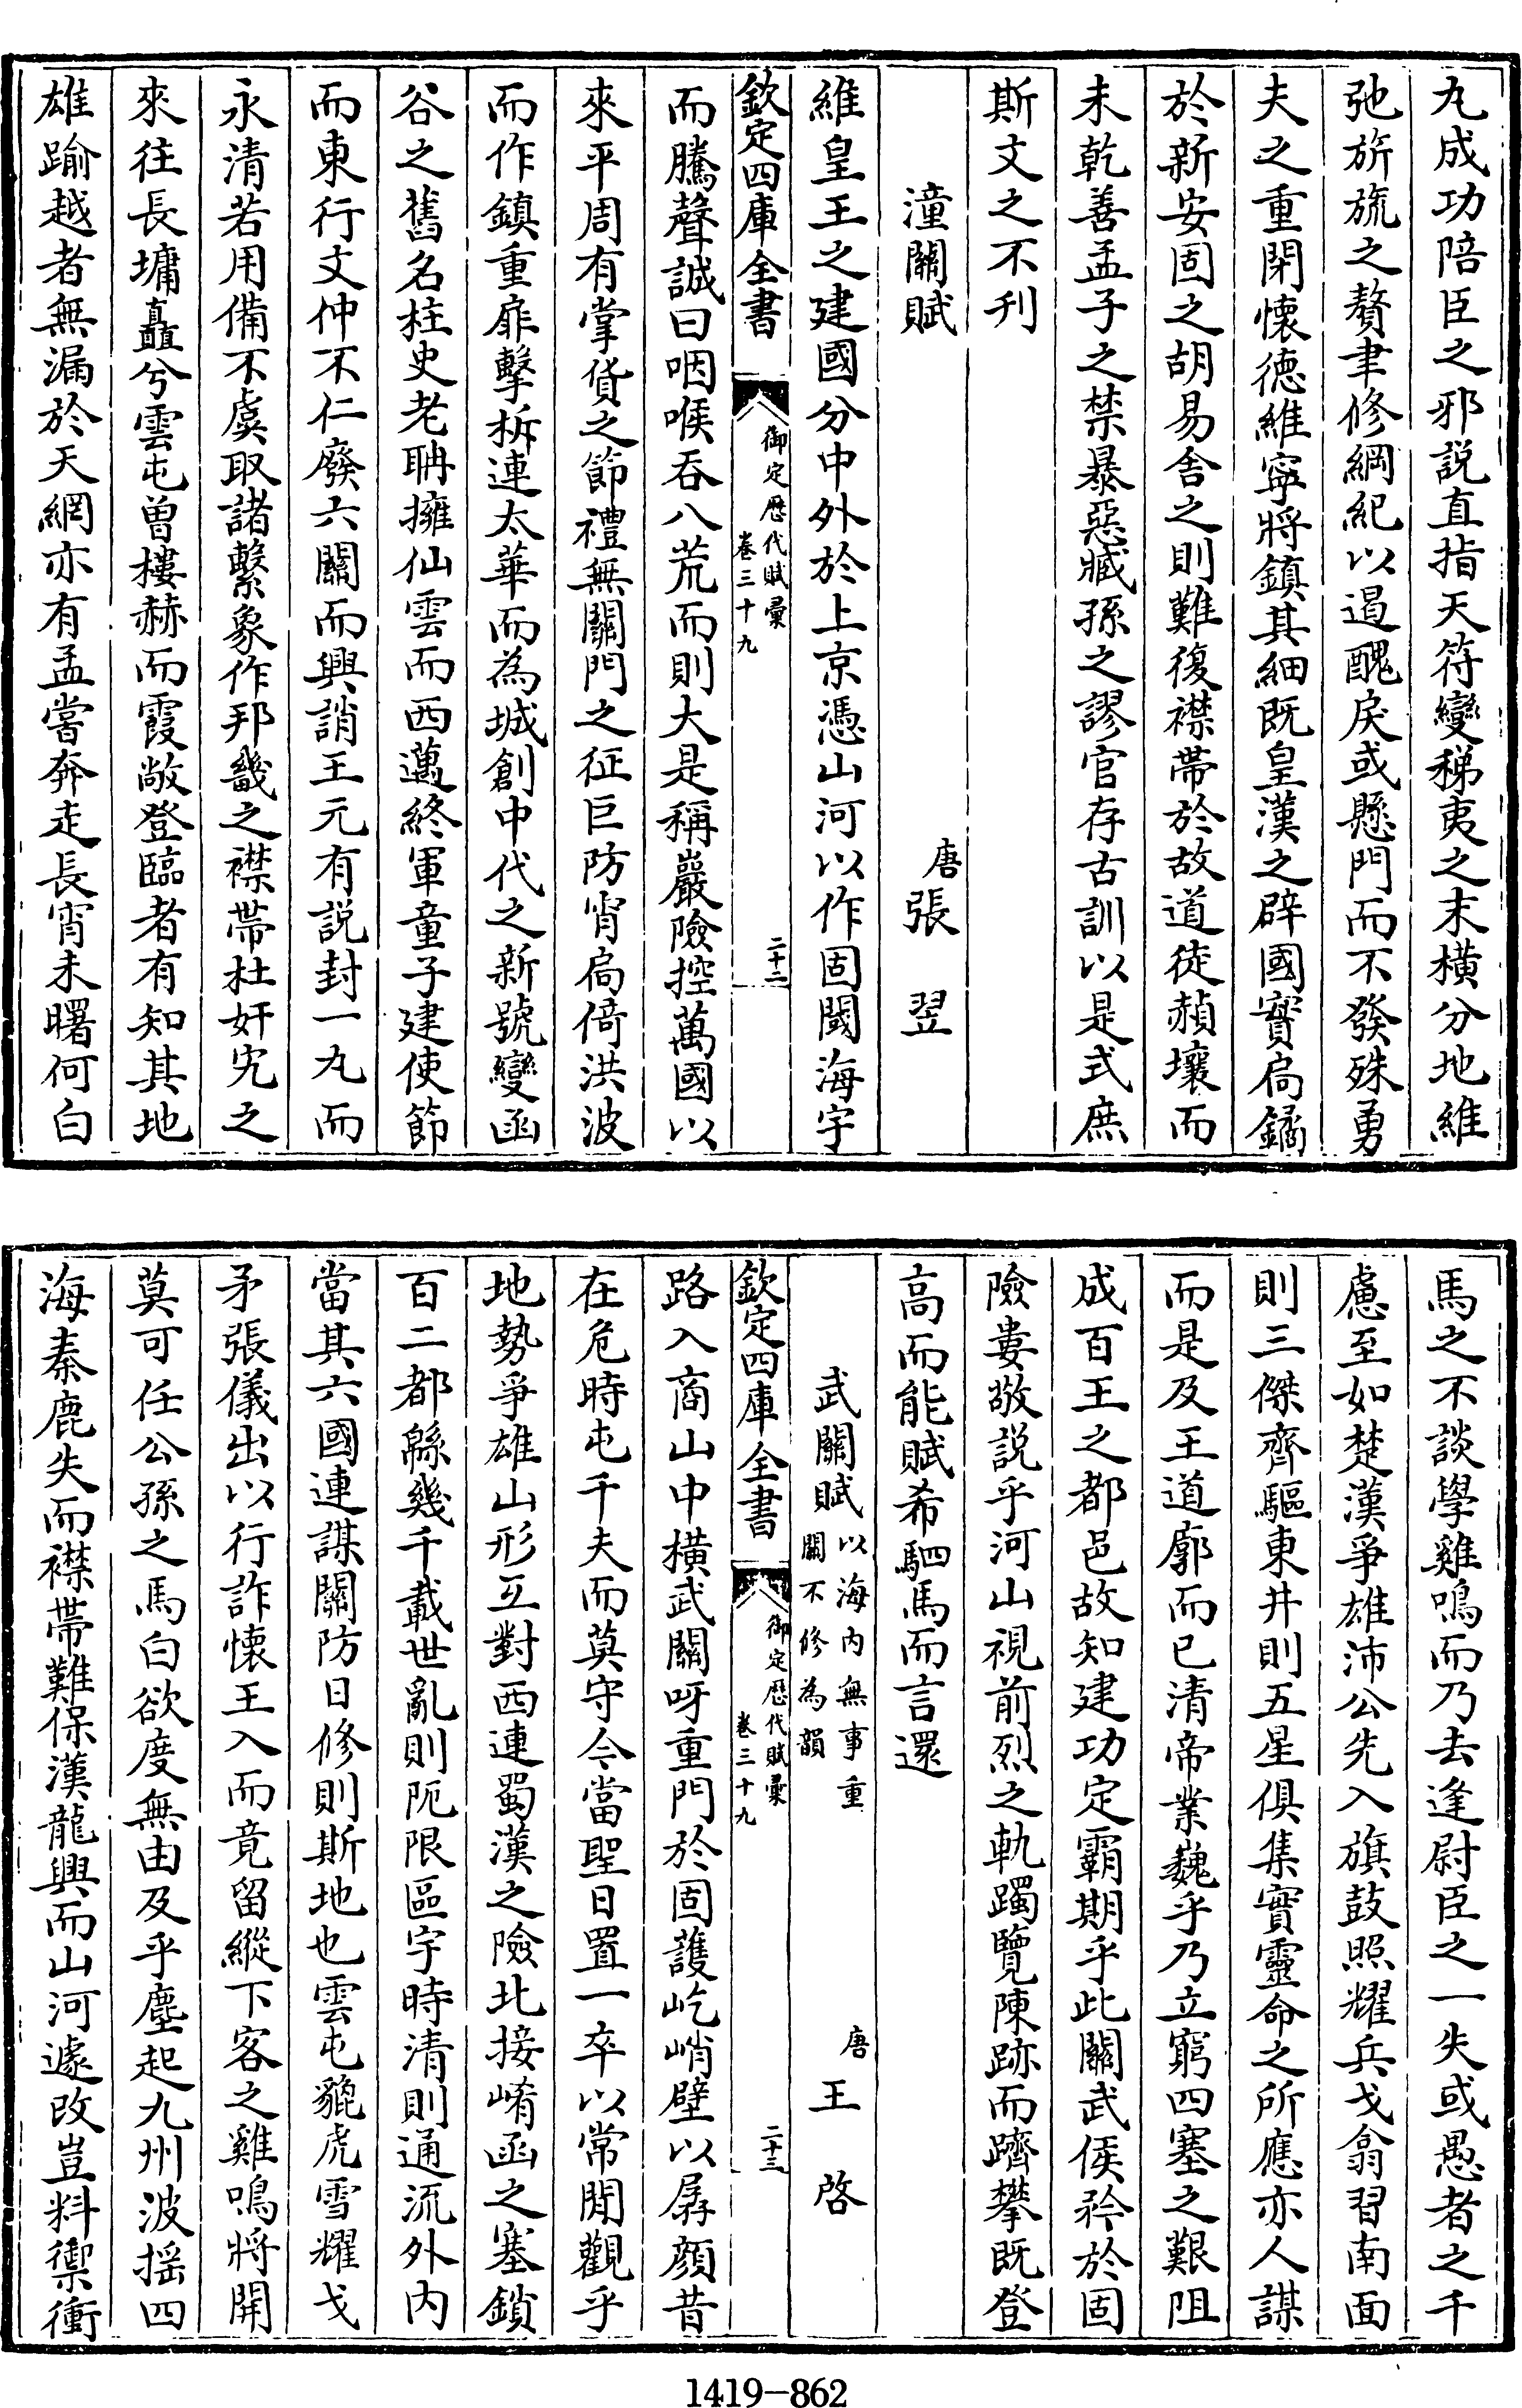 九成功陪臣之邪説直指天符變稊夷之末横分地維
弛旂旒之贅聿修綱紀以遏醜戾或懸門而不發殊勇
夫之重閉懷徳維寧將鎮其細既皇漢之辟國實扃鐍
於新安固之胡易舍之則難復襟帶於故道徙頳壤而
未乾善孟子之禁暴惡臧孫之謬官存古訓以是式庶
斯文之不刊
潼關賦
唐張翌
維皇王之建國分中外於上京憑山河以作固闚海宇
欽定四庫全書
御定歴代賦彙
卷三十九
二十二
而騰聲誠曰咽喉吞八荒而則大是稱巖險控萬國以
來平周有掌貨之節禮無關門之征巨防宵扃倚洪波
而作鎮重扉擊柝連太華而為城創中代之新號變函
谷之舊名柱史老聃擁仙雲而西邁終軍童子建使節
而東行文仲不仁廢六關而興誚王元有説封一丸而
永清若用備不虞取諸繫象作邦畿之襟帶杜奸宄之
來往長墉矗兮雲屯曽樓赫而霞敞登臨者有知其地
雄踰越者無漏於天網亦有孟嘗奔走長宵未曙何白
馬之不談學雞鳴而乃去逢尉臣之一失或愚者之千
慮至如楚漢爭雄沛公先入旗鼓照耀兵戈翕習南面
則三傑齊驅東井則五星俱集實靈命之所應亦人謀
而是及王道廓而已清帝業巍乎乃立窮四塞之艱阻
成百王之都邑故知建功定霸期乎此關武侯矜於固
險婁敬説乎河山視前烈之軌躅覽陳跡而躋攀既登
高而能賦希駟馬而言還
武關賦
以海内無事重
關不修為韻
唐王啓
欽定四庫全書
御定歴代賦彙
卷三十九
二十三
路入商山中横武關呀重門於固護屹峭壁以孱顔昔
在危時屯千夫而莫守今當聖日置一卒以常閒觀乎
地勢爭雄山形互對西連蜀漢之險北接崤函之塞鎖
百二都緜幾千載世亂則阨限區宇時清則通流外内
當其六國連謀關防日修則斯地也雲屯貔虎雪耀戈
矛張儀出以行詐懷王入而竟留縱下客之雞鳴將開
莫可任公孫之馬白欲度無由及乎塵起九州波揺四
海秦鹿失而襟帶難保漢龍興而山河遽改豈料禦衝
1419—862